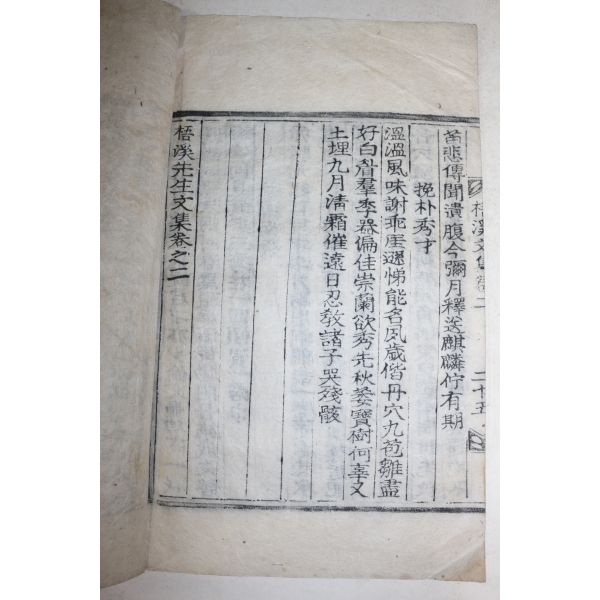 梧溪文集卷二 二十五
苗悲傳聞潰腹今彌月釋送麒麟佇有期
挽朴秀才
溫溫風味謝乖崖遜悌能名夙歲偕丹穴九苞雛盡
好白眉羣季器偏佳崇蘭欲秀先秋萎寶樹何辜又
土埋九月淸霜催遠日忍敎諸子哭殘骸
梧溪先生文集卷之二